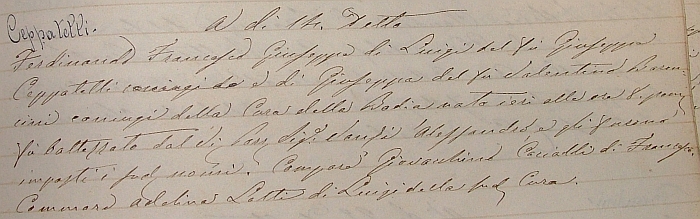 Ceppatelli.
A dì 14. detto
Ferdinando Francesco Giuseppe di Luigi del fu Giuseppe
Ceppatelli coniugi da e di Giuseppa del fu Valentino
coniugi della Cura della Badia nato ieri alle ore 8. pom
fu battezzato dal Sig. Alessandro e gli furono
imposti i sud nomi. Compare Giovacchino di Francesco
Commare Adelina Lotti di Luigi della sud Cura.